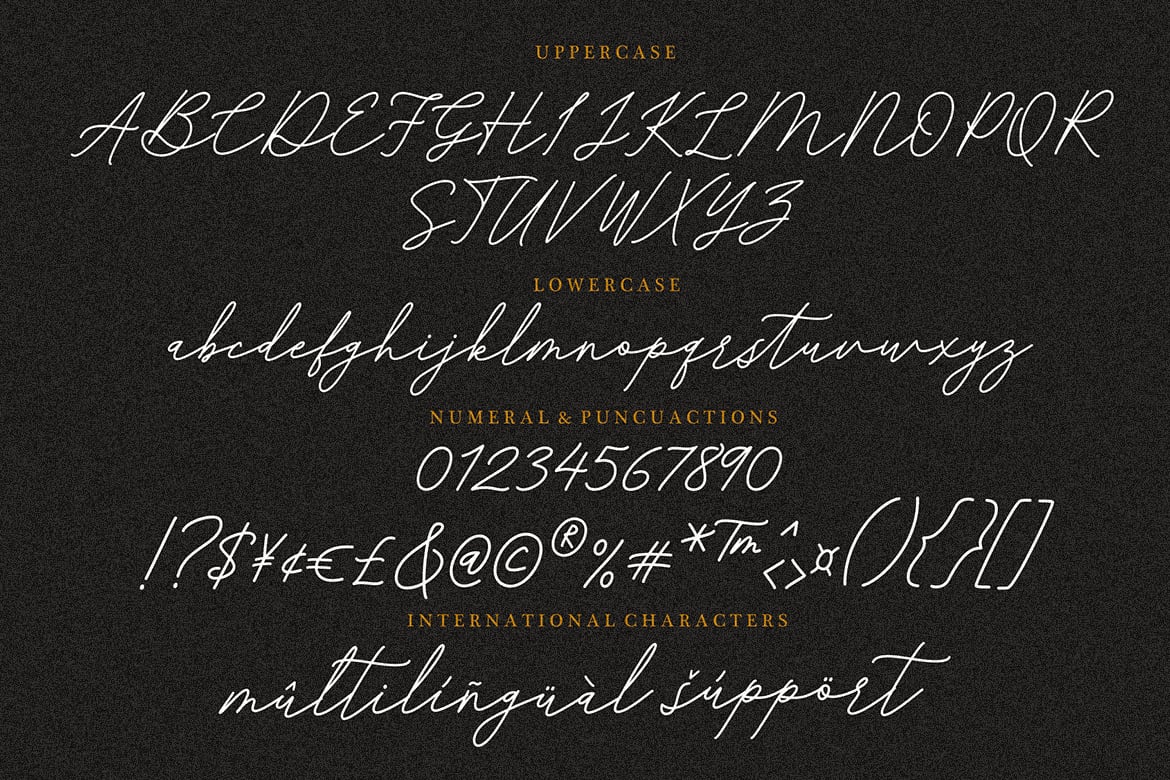 UPPERCASE
ABCDEFGHIJKLMNOPQR
STUVWXYZ
LOWERCASE
abcdefghijklmnopqrstuvwxyz
NUMERAL & PUNCUACTIONS
01234567890
!?$¥¢€£&@©®%#*™^<>¤(){}[]
INTERNATIONAL CHARACTERS
mûltilíñgüàl šúppört